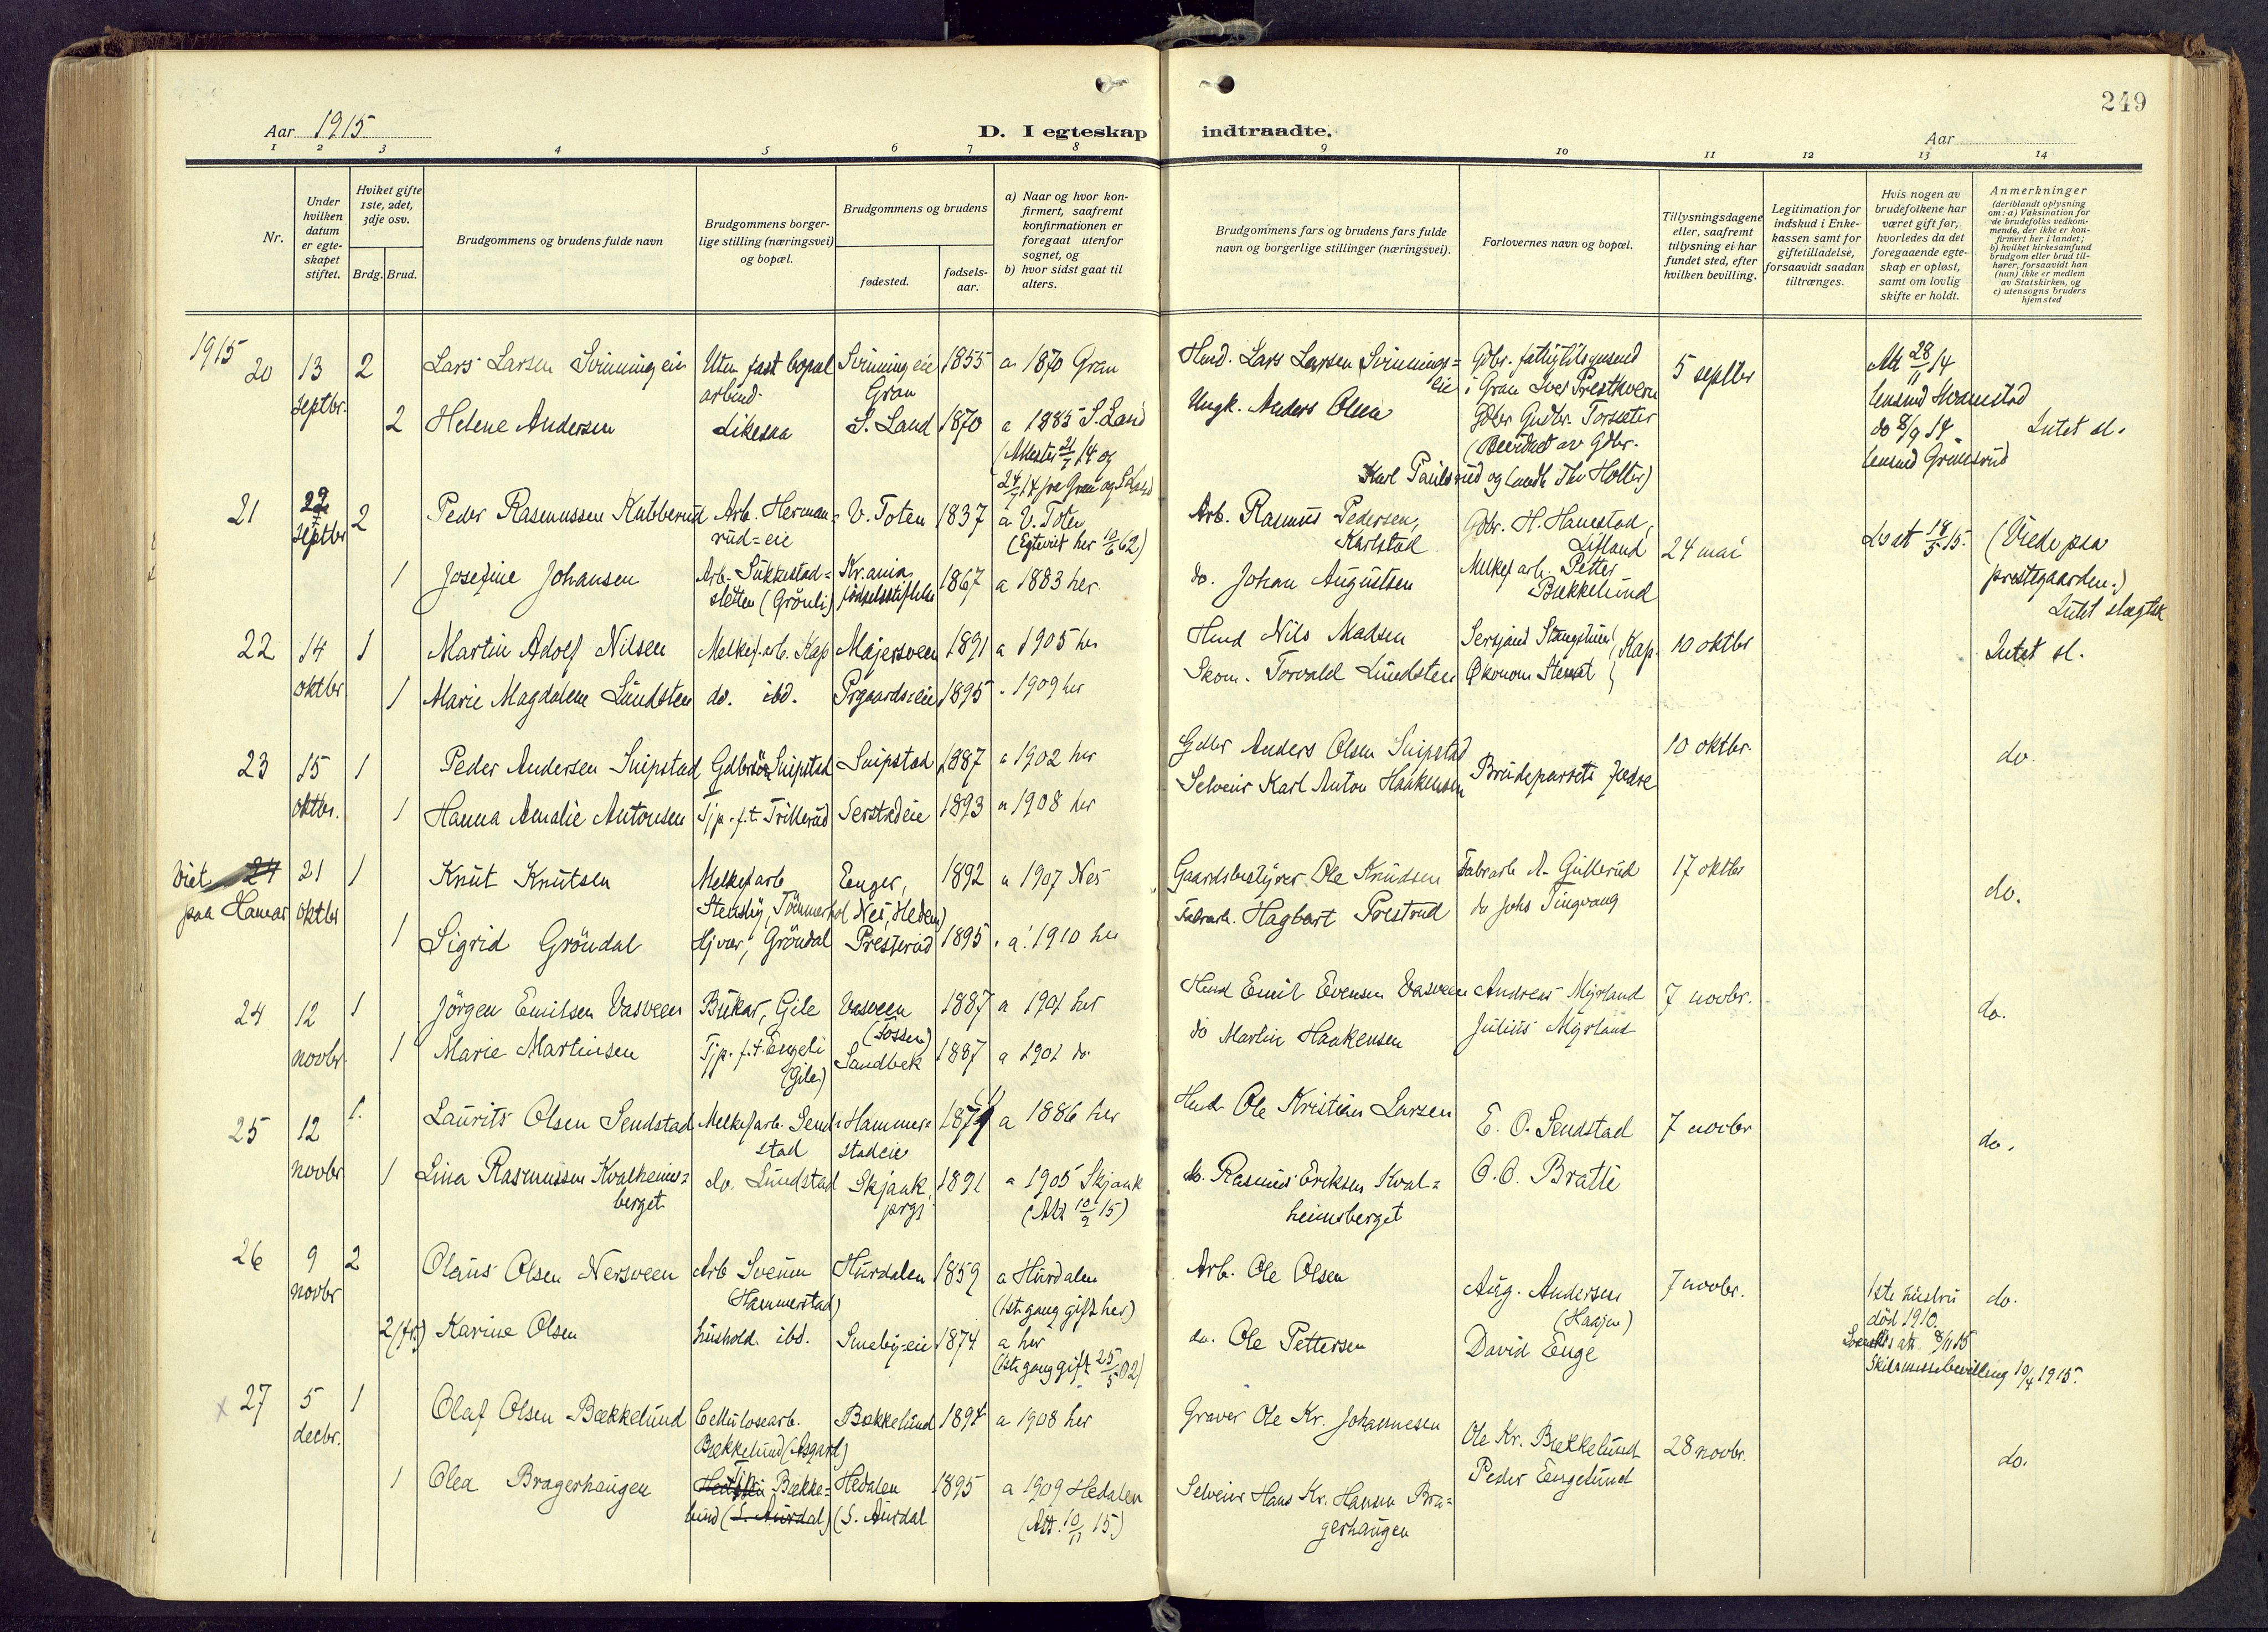 249
Aar 1915
D. I egteskap indtraadte.
Aar
1 2 3 4 5 6 7 8 9 10 11 12 13 14
Nr.
Under hvilken datum er egteskapet stiftet.
Hviket gifte 1ste, 2det, 3dje osv.
Brdg. Brud.
Brudgommens og brudens fulde navn
Brudgommens borgerlige stilling (næringsvei) og bopæl.
Brudgommens og brudens
fødested.
fødselsaar.
a) Naar og hvor konfirmert, saafremt konfirmationen er foregaat utenfor sognet, og
b) hvor sidst gaat til alters.
Brudgommens fars og brudens fars fulde navn og borgerlige stillinger (næringsvei).
Forlovernes navn og bopæl.
Tillysningsdagene eller, saafremt tillysning ei har fundet sted, efter hvilken bevilling.
Legitimation for indskud i Enkekassen samt for giftetilladelse, forsaavidt saadan tiltrænges.
Hvis nogen av brudefolkene har været gift før, hvorledes da det foregaaende egteskap er opløst, samt om lovlig skifte er holdt.
Anmerkninger (deriblandt oplysning om: a) Vaksination for de brudefolks vedkommende, der ikke er konfirmert her i landet; b) hvilket kirkesamfund brudgom eller brud tilhører, forsaavidt han (hun) ikke er medlem av Statskirken, og c) utensogns bruders hjemsted
1915
20 13 septbr. 2 Lars Larsen Svinning eie Uten fast bopæl arbeid. Svinning eie Gran 1855 a 1870 Gran
Hmd. Lars Larsen Svinningseie Gdbr. i Gran Iver Prestkvern 5 septbr Att 28/11 14 lensmd
2 Helene Andersen Likesaa S. Land 1870 a 1885 S. Land
(Attester 21/7 14 og 24/7 14 fra Gran og S. Land
Ungk. Anders Olsen Gdbr Gudbr. Torsæter do 8/9 14 lensmd Grimsrud Intet sl.
(Beevidnet av Gdbr. Karl Paulsrud og Thv Holter)
21 22 septbr 2 Peder Rasmussen Kubberud Arb. Hermanrud=eie V. Toten 1837 a V. Toten
(Egteviet her 10/6 62)
Arb. Rasmus Pedersen, Karlstad Gdbr. H. Hanestad, 24 mai 18/5 15. (Viede paa prestegaarden.)
Intet slegtsk
1 Josefine Johansen Arb. Sukkestadsletten (Grönli) Kr.ania fødselsstiftelse 1867 a 1883 her
do. Johan Augustsen Melkef arb. Petter Bækkelund
22 14 oktbr 1 Martin Adolf Nilsen Melkef.arb. Kap Majersveen 1891 a 1905 her
Hmd Nils Madsen Sersjant Kap. 10 oktbr Intet sl.
1 Marie Magdalene Lundsten do. ibd. Prgaardseie 1895 1909 her
Skom. Torvald Lundsten Økonom
23 15 oktbr. 1 Peder Andersen Snipstad Gdbrsön Snipstad Snipstad 1887 a 1902 her
Gdbr Anders Olsen Snipstad Brudeparrets fædre 10 oktbr. do.
1 Hanna Amalie Antonsen Tjp. f.t. Trillerud 1893 a 1908 her
Selveier Karl Anton Haakensen
Viet paa Hamar 24 21 oktbr 1 Knut Knutsen Melkefarb Stensby, Tömmerhol Eenger, Nes, Hedem) 1892 a 1907 Nes
Gaardsbestyrer Ole Knudsen Fabrarb A. Gullerud 17 oktbr do.
1 Sigrid Gröndal Hjvær, Gröndal Presterud 1895 a 1910 her
Fabrarb. Hagbart Prestrud do Johs Tingvang
24 12 novbr 1 Jörgen Emilsen Vasveen Bukar, Gile Vasveen (Fossen) 1887 a 1901 her
Hmd Emil Evensen Vasveen Andreas Myrland 7 novbr. do.
1 Marie Martinsen Tjp. f.t. Engeli (Gile) Sandbek 1887 a 1901 do
do Martin Haakensen Julius Myrland
25 12 novbr 1. Laurits Olsen Sendstad Melkefarb. Sendstad Hammerstadeie 1871 a 1886 her
Hmd. Ole Kristian Larsen E. O. Sendstad 7 novbr do.
1 Lina Rasmussen Kvalheimsberget do. Lundstad Skjaak prgj 1891 a 1905 Skjaak
(Att 10/9 15)
do. Rasmus Eriksen Kvalheimsberget O. O. Bratli
26 9 novbr 2 Olaus Olsen Nersveen Arb Sveum (Hammerstad) Hurdalen 1859 a Hurdalen
(1ste gang gift her)
Arb. Ole Olsen Aug. Andersen (Haajen) 7 novbr. 1ste hustru död 1910. do.
2 (fr.) Karine Olsen hushold. ibd. Smeby-eie 1874 a her
(1ste gang gift 25/5 02)
do. Ole Pettersen David Enge att 8/11 15
Skilsmissebevilling 10/4 1915.
x 27 5 decbr. 1 Olaf Olsen Bækkelund Cellulosearb. Bækkelund (Asgard) Bækkelund 1894 a 1908 her
Graver Ole Kr. Johannesen Ole Kr. Bækkelund 28 novbr. do.
1 Olea Bragerhaugen Tjp. Bækkelund (S. Aurdal) Hedalen (S. Aurdal 1895 a 1909 Hedalen
(Att. 10/11 15)
Selveier Hans Kr. Hansen Bragerhaugen Peder Engelund